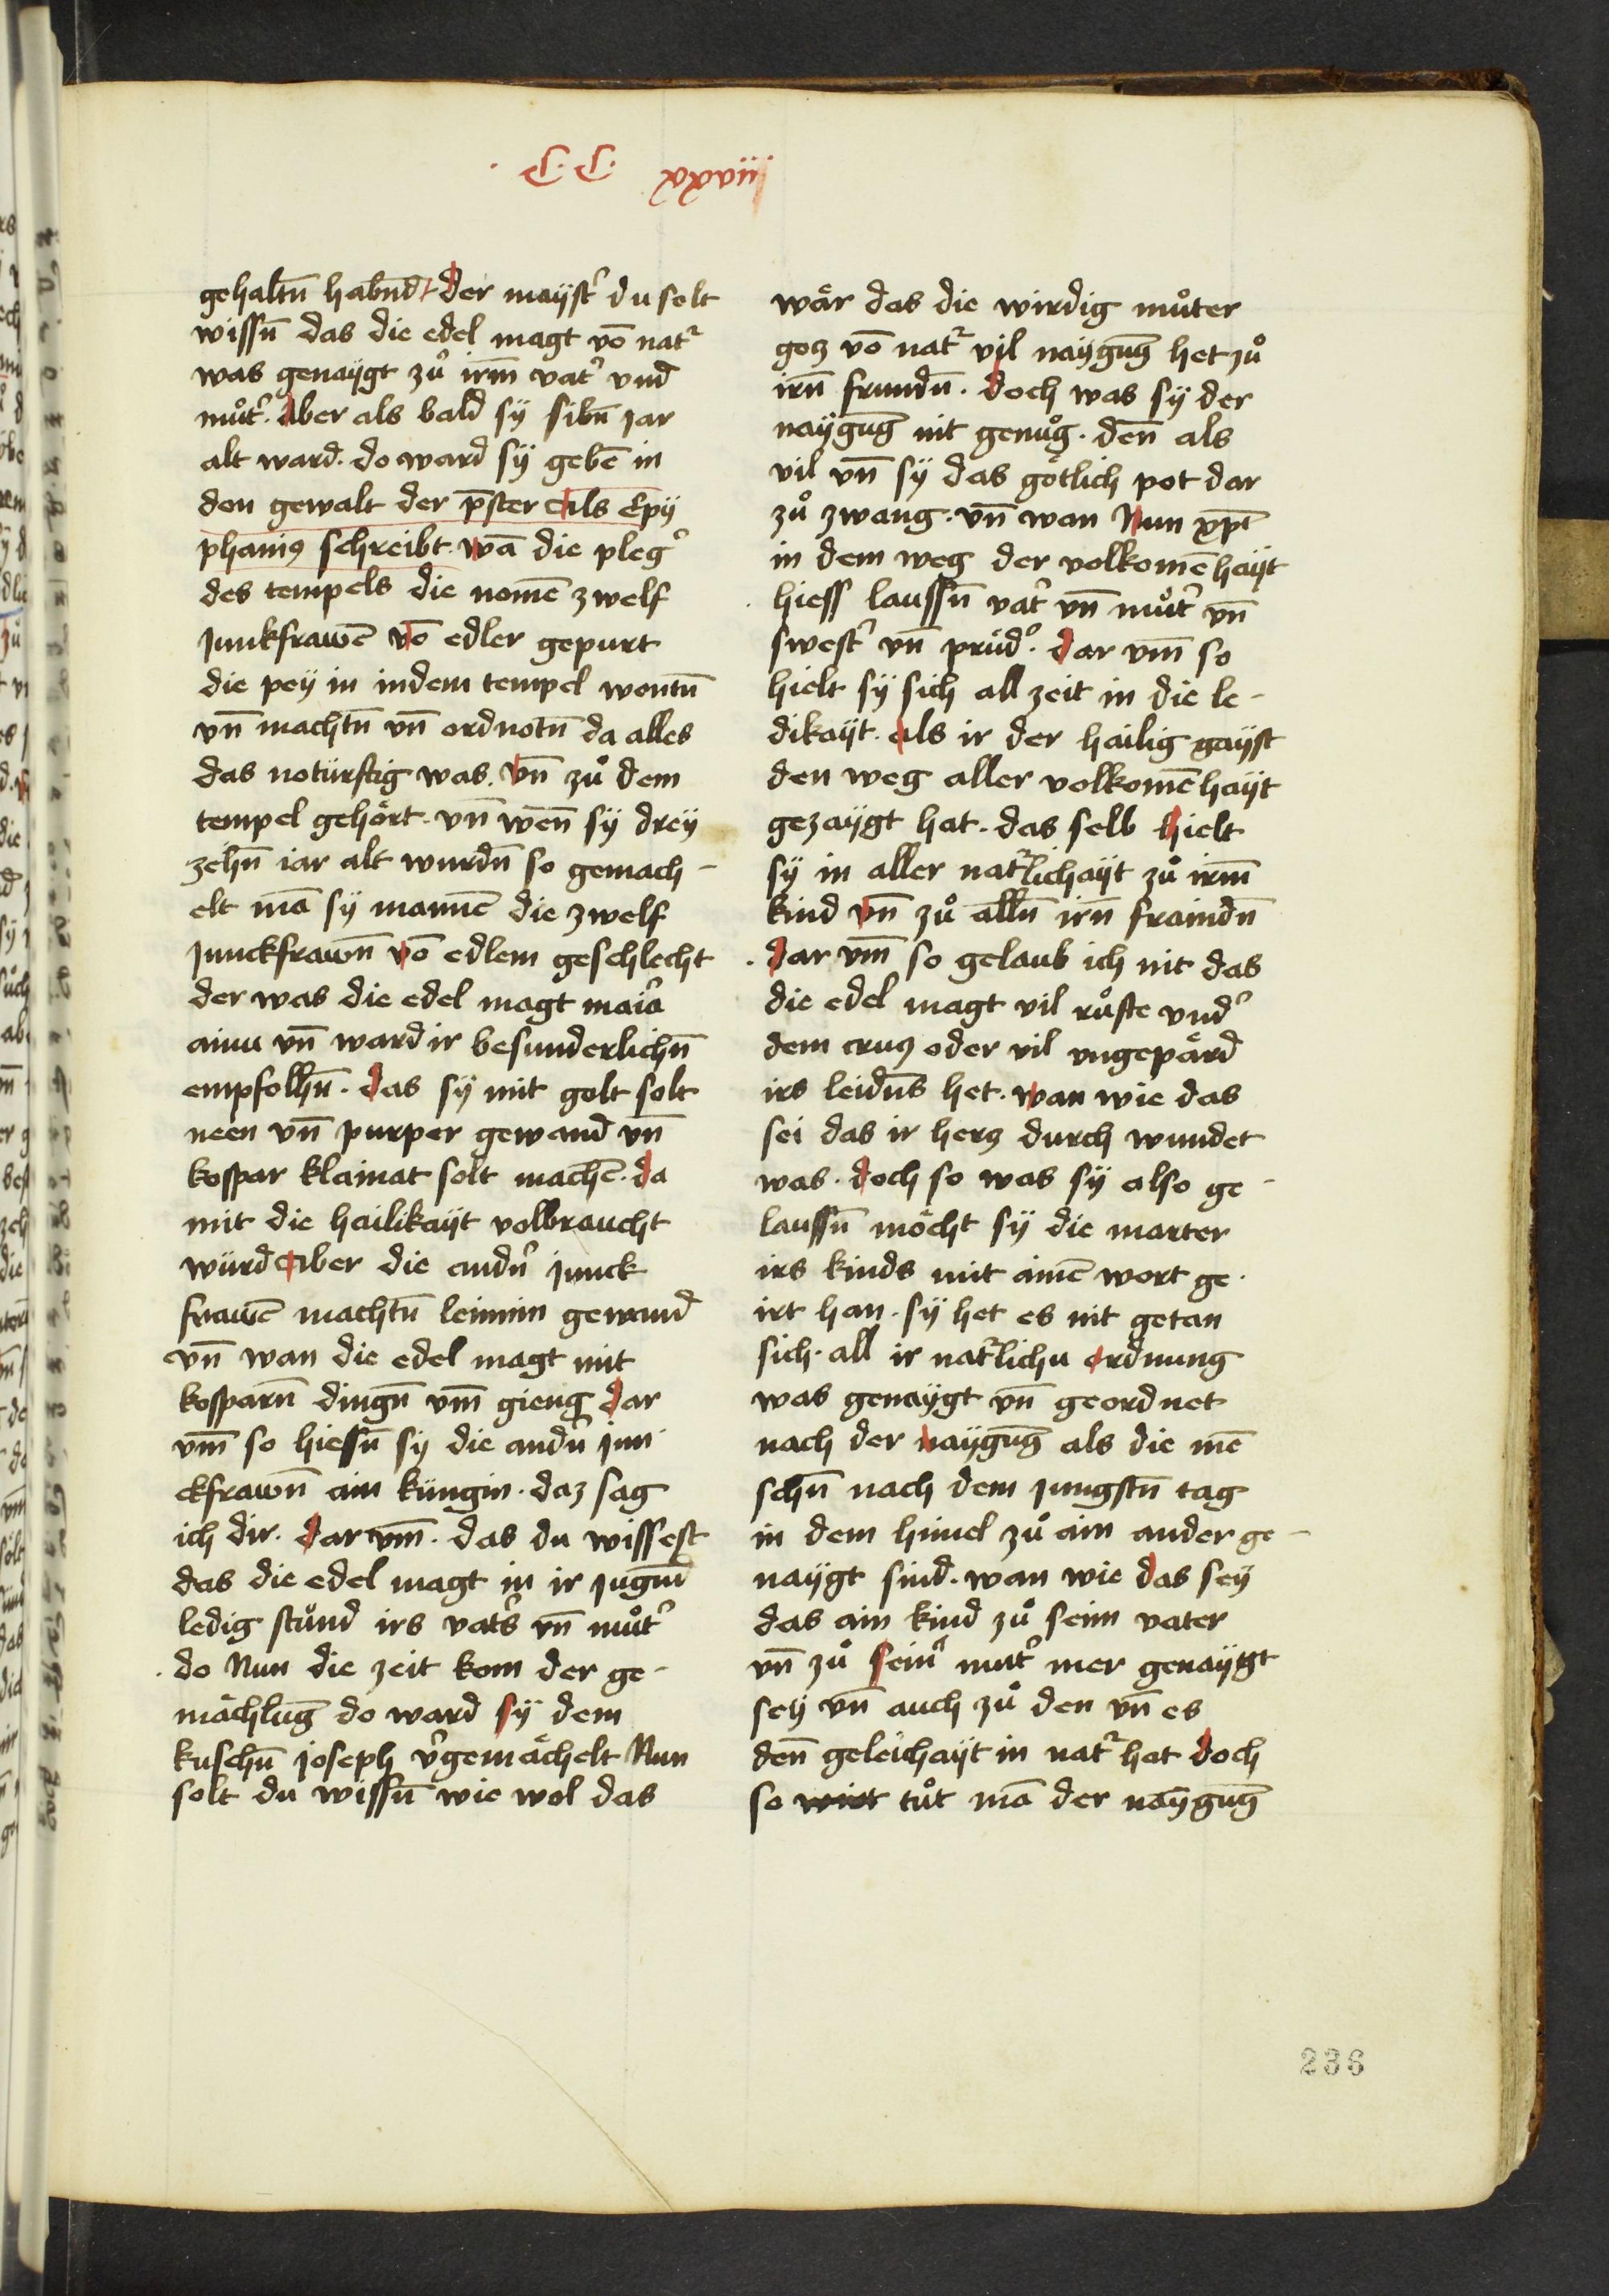 .C.C. xxxviij
gehaltn̄ habn̄d der mayst͛ du solt
wissn̄ das die edel magt vō nat͛
was genaygt zů irm̄ vat͛ vnd
můt͛. Aber als bald sy sibn̄ jar
alt ward. do ward sy gebē in
den gewalt der p̄ster Als Epy
phaniꝰ schreibt wā die pleg͛
des tempels die nomē zwelf
junkfrawē vō edler gepurt
die pey in indem tempel wontn̄
vn̄ machtn̄ vn̄ ordnotn̄ da alles
das notürftig was. vn̄ zů dem
tempel gehört. vn̄ wen̄ sy drey
zehn̄ iar alt wurdn̄ so gemach-
elt mā sy mannē die zwelf
junckfrawn̄ vō edlem geschlecht
der was die edel magt mar͛ia
ainu vn̄ ward ir besunderlichn̄
empfolhn̄. das sy mit golt solt
neen vn̄ purper gewand vn̄
kospar klainat solt machē. da
mit die hailikayt volbraucht
würd Aber die andn͛ junck
frawē machtn̄ leinnin gewand
vn̄ wan die edel magt mit
kosparn̄ dingn̄ vm̄ gieng dar
vm̄ so hiessn̄ sy die andn͛ jun
ckfrawn̄ ain küngin. daz sag
ich dir. dar vm̄. das du wissest
das die edel magt in ir jugn̄d
ledig stůnd irs vat͛s vn̄ můt͛
do Nun die zeit kom der ge-
mächluḡ do ward sy dem
kuschn̄ joseph v͛gemächelt Nun
solt du wissn̄ wie wol das
wär das die wirdig můter
gotz vō nat͛ vil nayguḡ het zů
irn̄ frundn̄. doch was sy der
nayguḡ nit genůg. den̄ als
vil vn̄ sy das götlich pot dar
zů zwang. vn̄ wan Nun xp̄c
in dem weg der volkomēhayt
hiess laussn̄ vat͛ vn̄ můt͛ vn̄
swest͛ vn̄ prüd͛. dar vm̄ so
hielt sy sich all zeit in die le-
dikayt. als ir der hailig gayst
den weg aller volkomēhayt
gezaygt hat. das selb hielt
sy in aller nat͛lichayt zů irm̄
kind vn̄ zů alln̄ irn̄ fraindn̄
dar vm̄ so gelaub ich nit das
die edel magt vil růfte vnd͛
dem crutz oder vil vngepärd
irs leidn̄s het. wan wie das
sei das ir hertz durch wundet
was. doch so was sy also ge-
laussn̄ möcht sy die marter
irs kinds mit ainē wort ge-
irt han. sy het es nit getan
sich. all ir nat͛lichu ordnung
was genaygt vn̄ geordnet
nach der nayguḡ als die mē
schn̄ nach dem jungstn̄ tag
in dem himel zů ain ander ge-
naygt sind. wan wie das sey
das ain kind zů seim vater
vn̄ zů sein͛ mut͛ mer genaygt
sey vn̄ auch zů den vn̄ es
den̄ geleichayt in nat͛ hat doch
so wirt tůt mā der nayguḡ
236